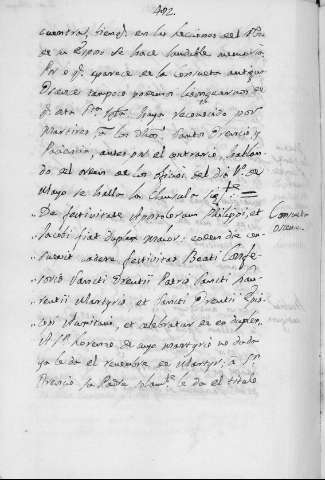 482.
cuentra, tiend. en las lecciones del
de su Esposa se hace laudable memoria.
Por q. aparece en la Consueta antigua
Oscense tampoco podemos
q. esta Sta. Iglª. haya reconocido por
Martires a los dhos. Santo Orencio y
Paciencia, antes por el contrario, hallan-
do del orden de los oficios del dia 1º. de
Mayo se halla la Clausula sigte. =
De festivitate Appostolorum Philippi, et
Jacobi fiat Duplex maior, eodem die con-
suevit cadere festivitas Beati Confe-
soris Sancti Orentii Patris Sancti Lau-
rentii Martyris, et Sancti Orentii Epis-
copi Auxitani, et celebratur de eo duplex.
A Sn. Lorenzo de cuyo martyrio no duda
ya le da el renombre de Martyr, a Sn.
Orencio su Padre solamte. le da el titulo
Consueta
Oscense.